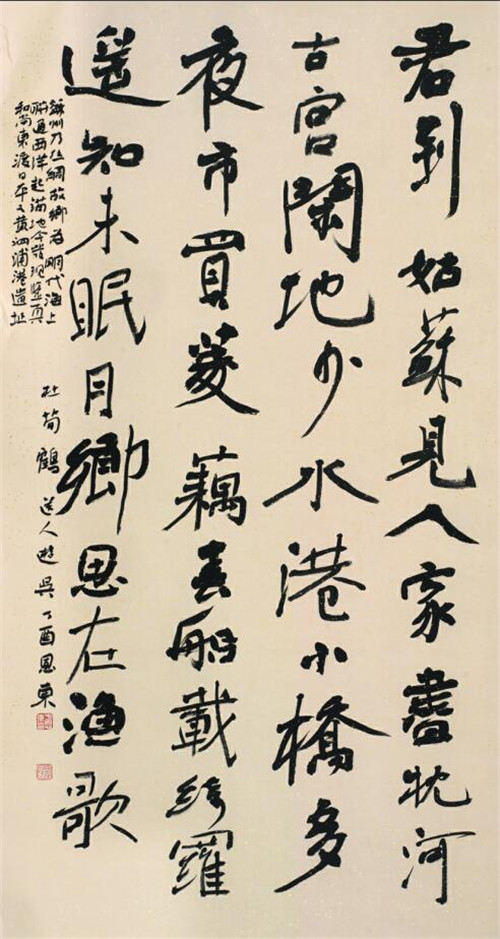 君到姑蘇見人家盡枕河
古宮閑地少水港小橋多
夜市買菱藕春船載綺羅
遥知未眠月鄉思在渔歌
蘇州乃丝綢故鄉为明代海上
聯通西洋起錨地今發現鑒真
和尚東渡日本之黄泗浦港遺址
杜荀鶴送人遊吳丁酉恩東